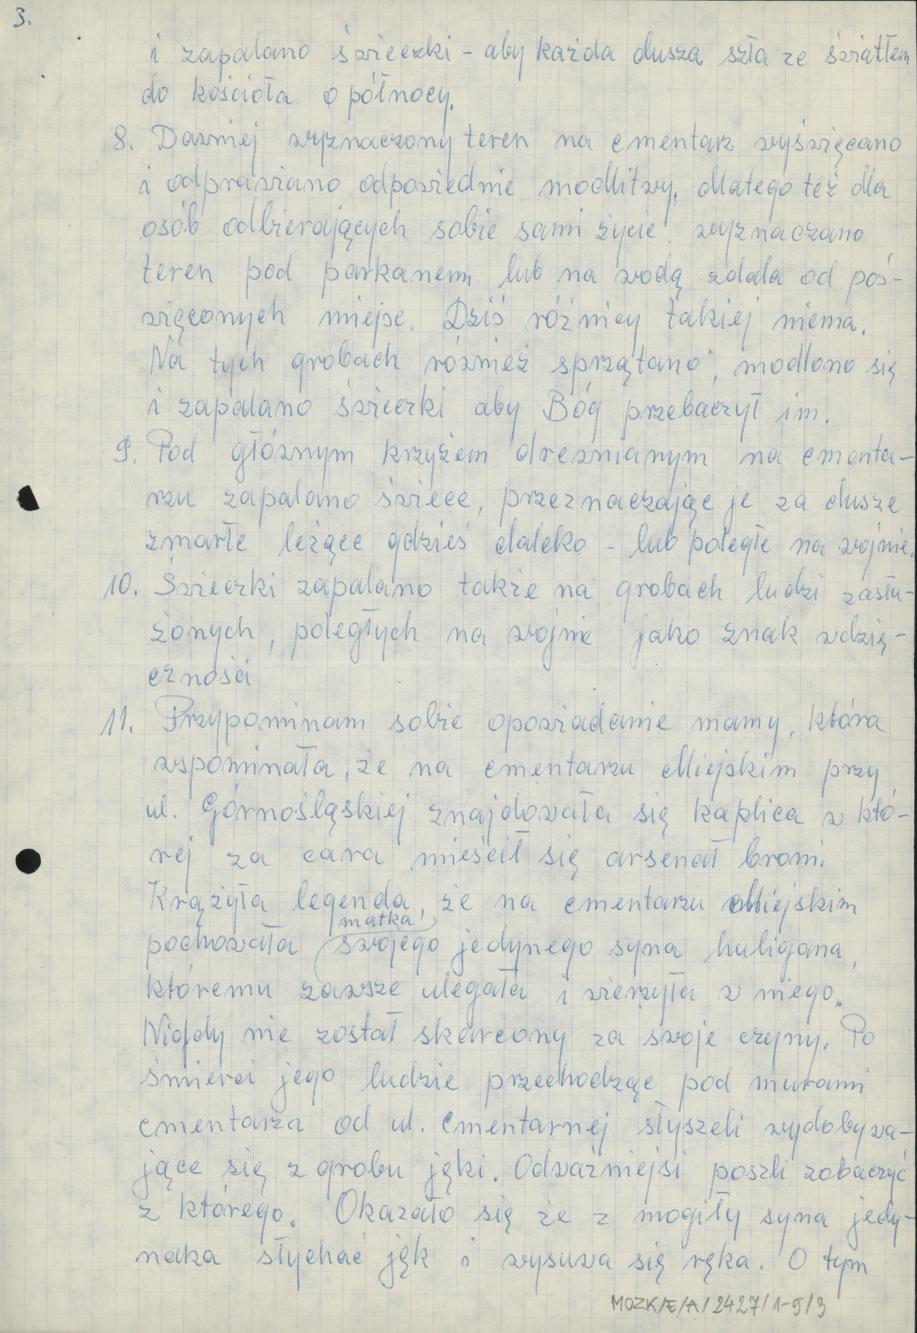 3.
i zapalano świeczki - aby każda dusza szła ze światłem
do kościoła o północy.
8. Dawniej wyznaczony teren na cmentarz wyświęcano
i odprawiano odpowiednie modlitwy, dlatego też dla
osób odbierających sobie sami życie! wyznaczano
teren pod parkanem lub na wodą zdala od poś-
więconych miejsc. Dziś różnicy takiej niema.
Na tych grobach również sprzątano, modlono się
i zapalano świeczki aby Bóg przebaczył im.
9. Pod głównym krzyżem drewnianym na cmenta-
rzu zapalano świece, przeznaczając je za dusze
zmarłe leżące gdzieś daleko - lub poległe na wojnie.
10. Świeczki zapalano także na grobach ludzi zasłu-
żonych, poległych na wojnie jako znak wdzię-
czności
11. Przypominam sobie opowiadanie mamy, która
wspominała, że na cmentarzu Miejskim przy
ul. Górnośląskiej znajdowała się kaplica w któ-
rej za cara mieścił się arsenał broni.
Krążyła legenda, że na cmentarzu Miejskim
matka!
pochowała swojego jedynego syna huligana,
któremu zawsze ulegała i wierzyła w niego.
Nigdy nie został skarcony za swoje czyny. Po
śmierci jego ludzie przechodząc pod murami
cmentarza od ul. Cmentarnej słyszeli wydobywa-
jące się z grobu jęki. Odważniejsi poszli zobaczyć
z którego. Okazało się że z mogiły syna jedy-
naka słychać jęk i wysuwa się ręka. O tym
MOZK/E/A/2427/1-9/3